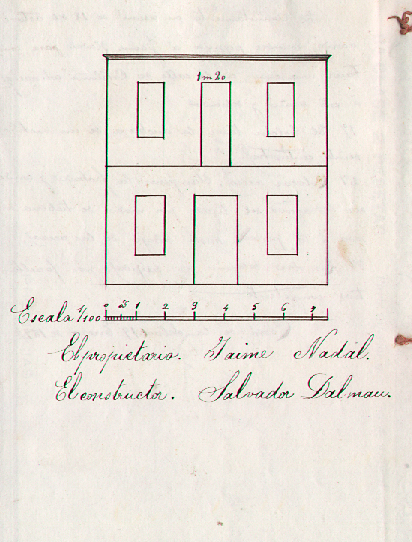 1m20
Escala 1/100 0 1 2 3 4 5 6 7
El propietario. Jaime Nadál.
El constructor. Salvador Dalmau.